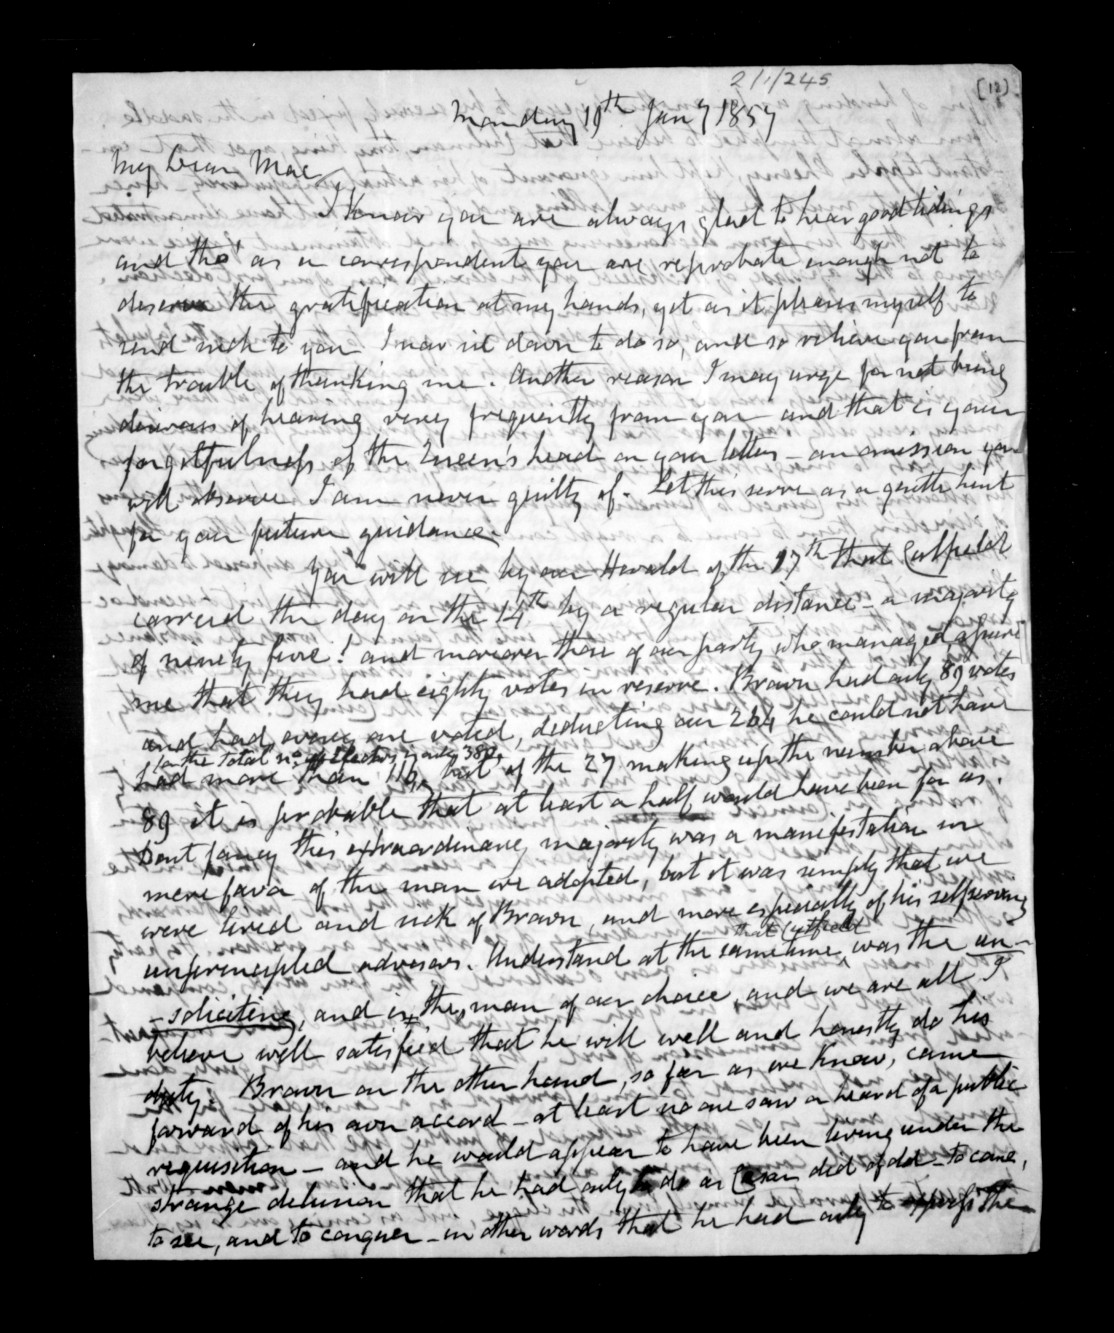 2/1/245
(12)
Monday 19th Jany 1857
My Dear Mac
I Know you are always glad to hear good tidings
and tho' as a correspondent you are reprobate enough not to
deserve the gratification at my hands, yet as it pleases myself to
send such to you I now sit down to do so, and so relieve you from
the trouble of thanking me. Another reason I may urge for not being
desirous of hearing very frequently from you and that is your
forgetfulness of the Queen's head on your letters - an omission you
will observe I am never guilty of. Let this serve as a gentle hint
for your future guidance.
You will see by our Herald of the 17th that Cutfield
carried the day on the 14th by a regular distance - a majority
of ninety five! and moreover those of our party who managed, assure
me that they had eighty votes in reserve. Brown had only 89 votes
and had every one voted, deducting our 264 he could not have
(on the total no. of Electors is only 380)
had more than 116, but of the 27 making up the number above
89 it is probable that at least a half would have been for us.
Dont fancy this extraordinary majority was a manifestation in
mere favor of the man we adopted, but it was simply that we
were tired and sick of Brown, and more especially of his selfserving
unprincipled advisers. Understand at the same time that Cutfield was the un-
-soliciting, and is the man of our choice, and we are all I
believe well satisfied that he will well and honestly do his
duty. Brown on the other hand, so far as we Know, came
forward of his own accord - at least no one saw or heard of a public
requisition - and he would appear to have been living under the
strange delusion that he had only to do as Cesar did of old - to come,
to see, and to conquer - in other words that he had only to the